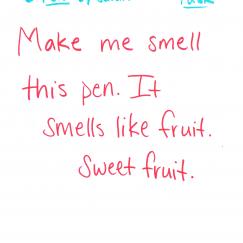 Make me smell
this pen. It
smells like fruit.
Sweet fruit.